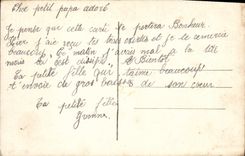 petit papa adoré
Je pense que cette carte te portera Bonheur.
Hier j'ai reçu tes et je te remercie
beaucoup. Ce matin j'avais mal à la tête
mais c'est dissipé. à Bientôt
Ta petite fille qui t'aime beaucoup
et t'envoie de gros baisers de son cœur
Ta petite fille